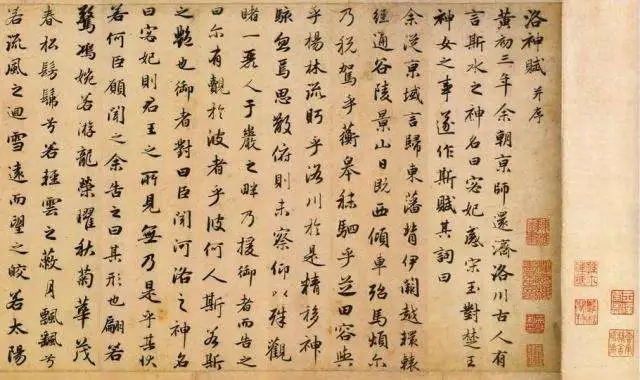 洛神賦 并序
黃初三年余朝京師還濟洛川古人有
言斯水之神名曰宓妃感宋玉對楚王
神女之事遂作斯賦其詞曰
余從京域言歸東藩背伊闕越轘轅
經通谷陵景山日既西傾車殆馬煩尔
乃稅駕乎蘅皋秣駟乎芝田容與
乎楊林流眄乎洛川於是精移神
駭忽焉思散俯則未察仰以殊觀
睹一麗人于巖之畔乃援御者而告之
曰尔有覿於彼者乎彼何人斯若斯
之豔也御者對曰臣聞河洛之神名
曰宓妃則君王之所見無乃是乎其狀
若何臣願聞之余告之曰其形也翩若
驚鴻婉若游龍榮曜秋菊華茂
春松髣髴兮若輕雲之蔽月飄飄兮
若流風之迴雪遠而望之皎若太陽